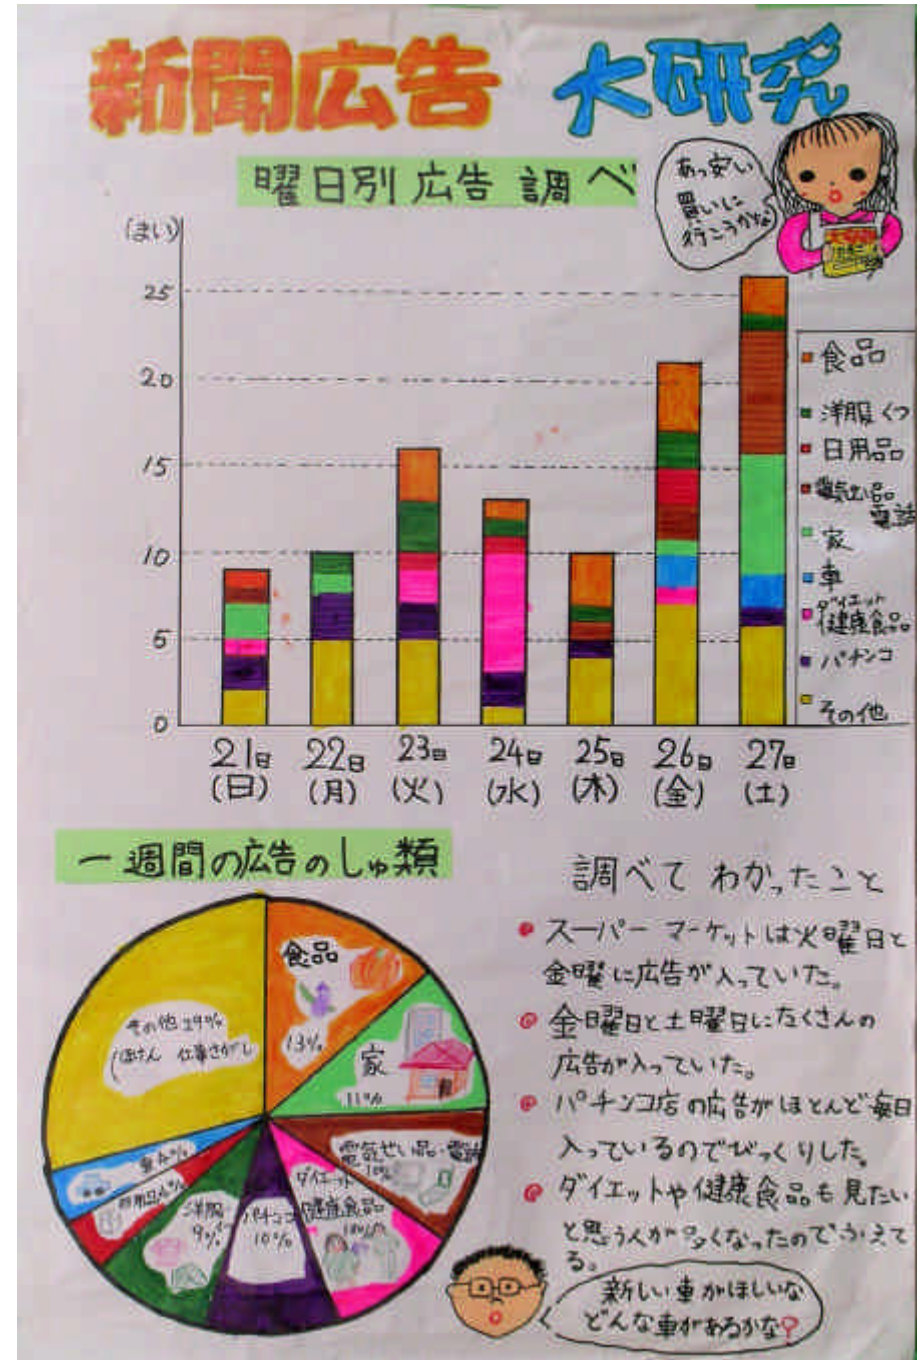 新聞広告 大研究
曜日別 広告 調べ
あっ安い
買いに
行こうかな
(まい)
25
20
15
10
5
0
食品
洋服くつ
日用品
電気せい品
電話
家
車
ダイエット
健康食品
パチンコ
その他
21日 22日 23日 24日 25日 26日 27日
(日) (月) (火) (水) (木) (金) (土)
一週間の広告のしゅ類
食品
13%
家
11%
電気せい品・電話
10%
ダイエット
健康食品
10%
パチンコ
10%
洋服
9%
日用品4%
車4%
その他29%
(ほけん 仕事さがし
調べて わかったこと
スーパー マーケットは火曜日と
金曜に広告が入っていた。
金曜日と土曜日にたくさんの
広告が入っていた。
パチンコ店の広告がほとんど毎日
入っているのでびっくりした。
ダイエットや健康食品も見たい
と思う人が多くなったのでふえて
る。
新しい車がほしいな
どんな車があるかな?